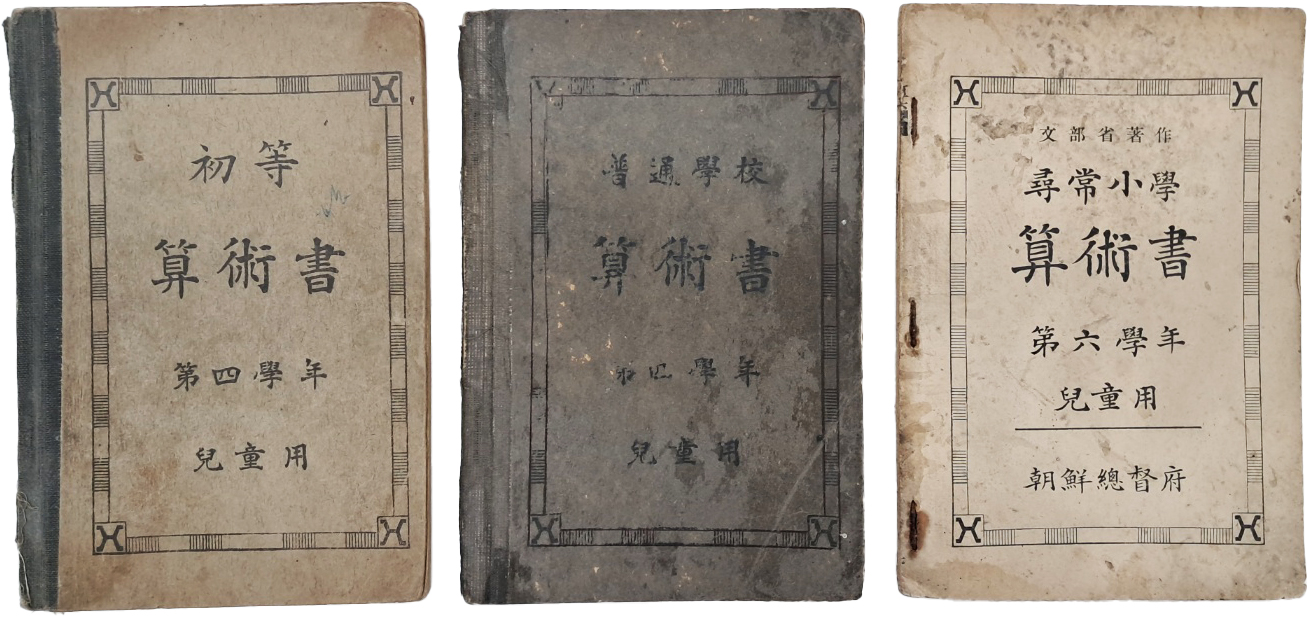 初等
算術書
第四學年
兒童用
普通學校
算術書
第四學年
兒童用
文部省著作
尋常小學
算術書
第六學年
兒童用
朝鮮總督府